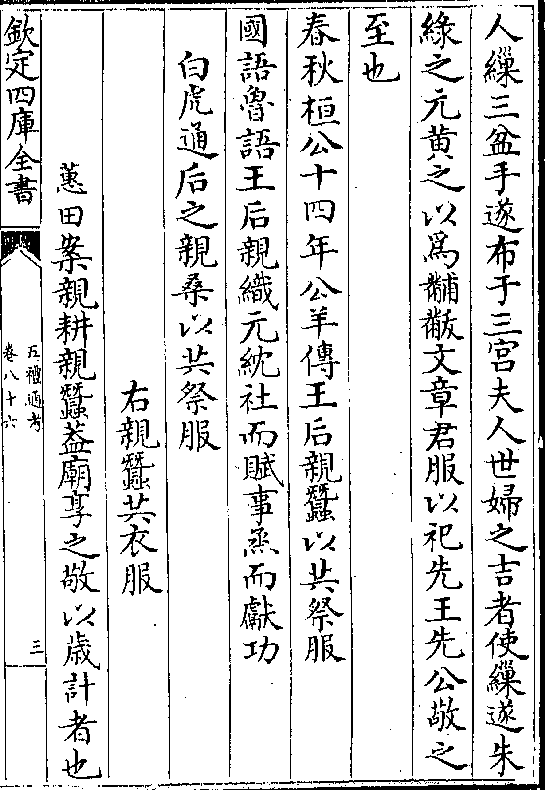 人繅三盆手遂布于三宮夫人世婦之吉者使繅遂朱
綠之元黄之以為黼黻文章君服以祀先王先公敬之
至也
春秋桓公十四年公羊傳王后親蠶以共祭服
國語魯語王后親織元紞社而賦事烝而獻功
白虎通后之親桑以共祭服
右親蠶共衣服
蕙田案親耕親蠶葢廟享之敬以歲計者也
欽定四庫全書
五禮通考
卷八十六
三